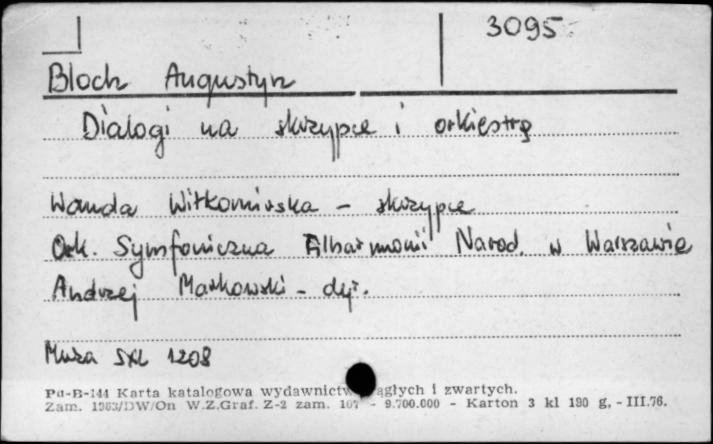 3095
Bloch Augustyn
Dialogi na skrzypce i orkiestrę
Wanda Wiłkomirska - skrzypce
Ork. Symfoniczna Filharmonii Narod. w Warszawie
Andrzej Markowski - dyr.
Muza SXL 1208
Pu-B-144 Karta katalogowa wydawnictw ągłych i zwartych.
Zam. 1363/DW/On W.Z.Graf. Z-2 zam. 107 - 9.700.000 - Karton 3 kl 180 g. - III.76.